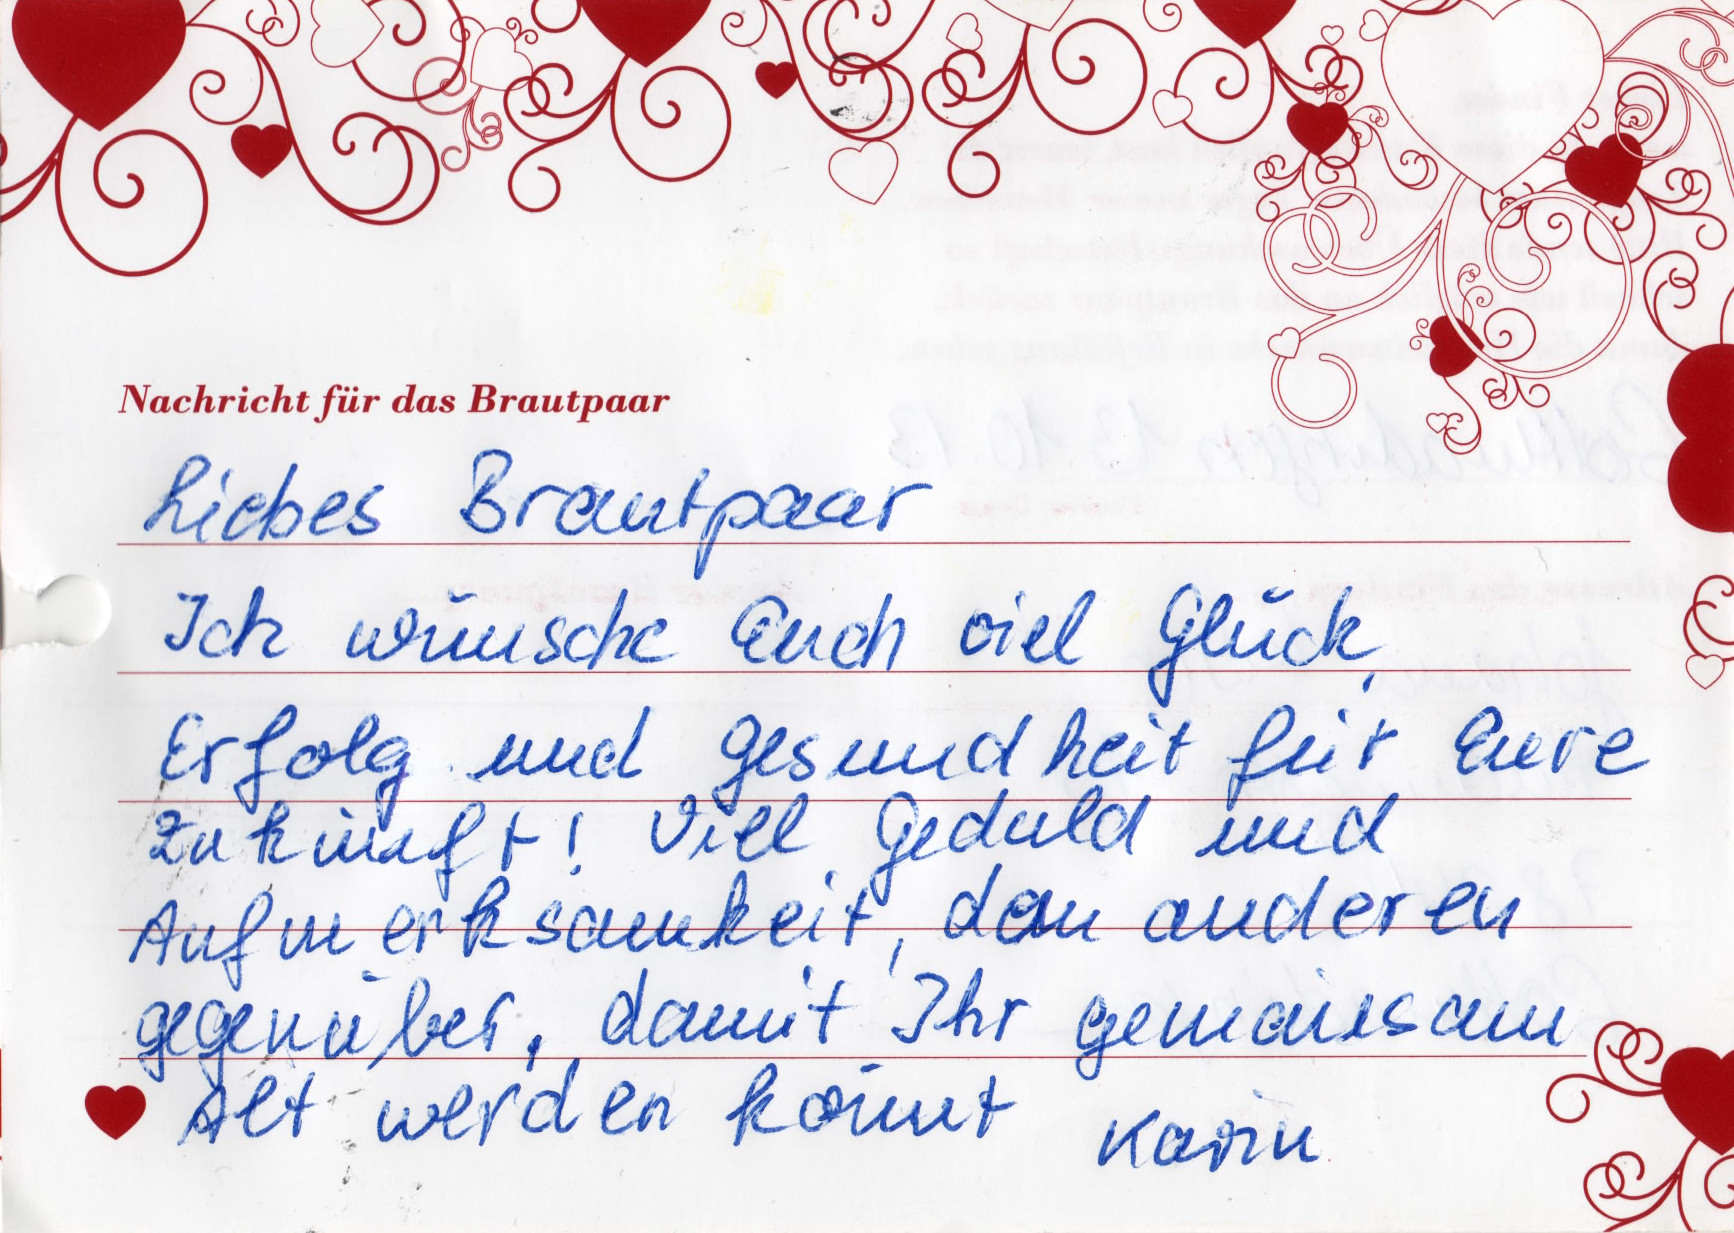 Nachricht für das Brautpaar
Liebes Brautpaar
Ich wünsche Euch viel Glück,
Erfolg und Gesundheit für Eure
Zukunft! Viel Geduld und
Aufmerksamkeit, dem anderen
gegenüber, damit Ihr gemeinsam
Alt werden könnt Karin